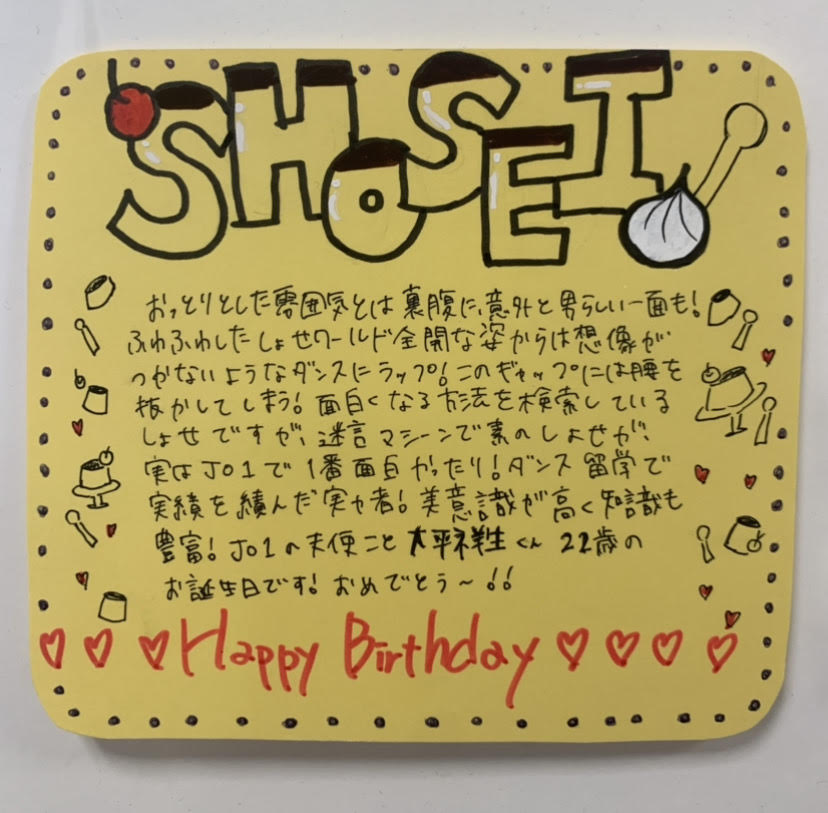 SHOSEI
おっとりとした雰囲気とは裏腹に、意外と男らしい一面も!
ふわふわしたしょせワールド全開な姿からは想像が
つかないようなダンスにラップ!このギャップには腰を
抜かしてしまう!面白くなる方法を検索している
しょせですが、迷言マシーンで素のしょせが、
実はJO1で1番面白かったり!ダンス留学で
実績を積んだ実力者!美意識が高く知識も
豊富!JO1の天使こと大平祥生くん22歳の
お誕生日です!おめでとう～!!
Happy Birthday